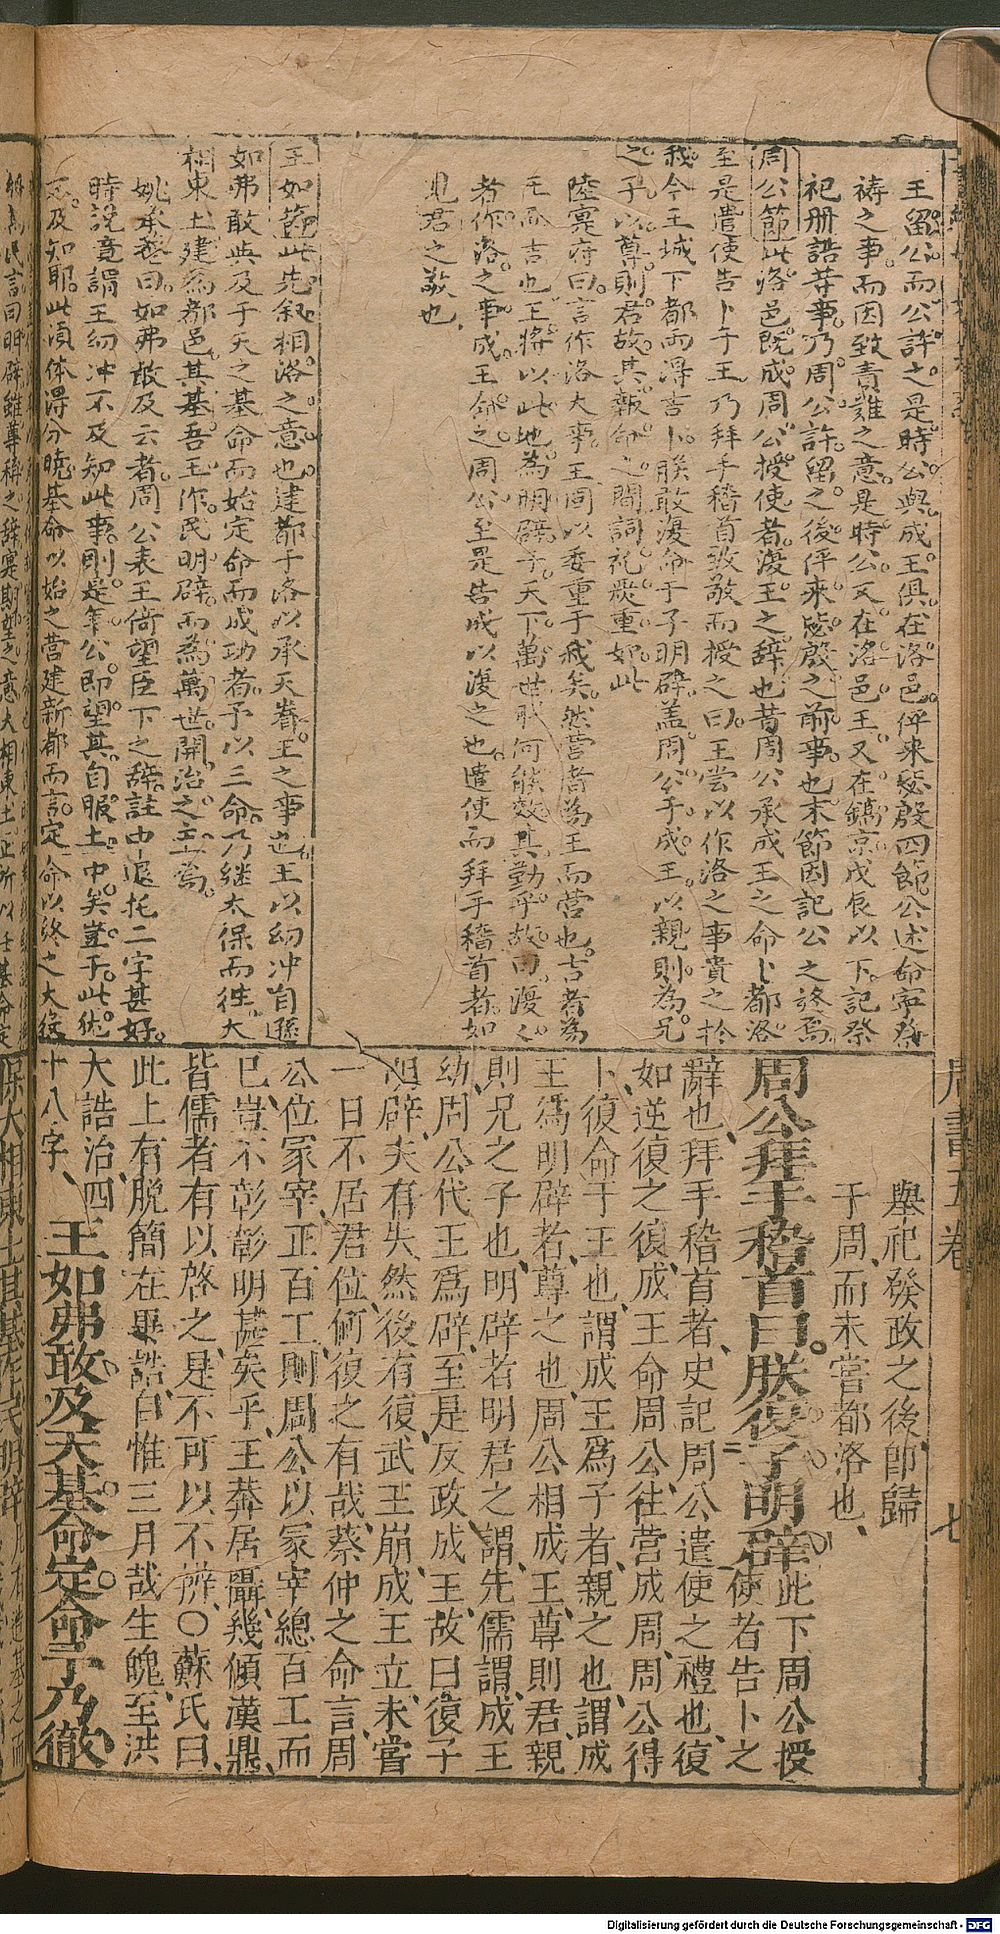 王留公而公許之是時公與成王俱在洛邑伻来毖殷四節公述命寧祭
禱之事而因致責難之意是時公又在洛邑王又在鎬京戊辰以下記祭
祀册誥等事乃周公許留之後伻来毖殷之前事也末節因記公之終焉
周公節此洛邑既成周公授使者復王之辞也昔周公承成王之命卜都洛
至是遣使告卜于王乃拜手稽首致敬而授之曰王嘗以作洛之事責之於
我今王城下都而得吉卜朕敢復命于子明辟盖周公于成王以親則為兄
之子以尊則君故其報命之間詞礼嚴重如此
陸寅府曰言作洛大事王固以委重于我矣然營者為王而營也吉者為
王而吉也王將以此地為明辟于天下萬世我何能效其勤乎故曰復復
者作洛之事成王命之周公至是告成以復之也遣使而拜手稽首者如
見君之敬也
王如節此先叙相洛之意也建都于洛以承天眷王之事也王以幼冲自遜
如弗敢與及于天之基命而始定命而成功者予以三命乃继太保而徃大
相東土建為都邑其基吾王作民明辟而為萬世開治之主焉
姚承菴曰如弗敢及云者周公表王倚望臣下之辞註中退托二字甚好
時説竟謂王幼冲不及知此事則是年公即望其自服土中矣豈于此
不及知耶此須体得分曉基命以始之營建新都而言定命以终之大後
周書五卷
七
舉祀發政之後即歸
于周而未嘗都洛也
周公拜手稽首曰朕復子明辟此下周公授
使者告卜之
辭也拜手稽首者史記周公遣使之禮也復
如逆復之復成王命周公往營成周周公得
卜復命于王也謂成王爲子者親之也謂成
王爲明辟者尊之也周公相成王尊則君親
則兄之子也明辟者明君之謂先儒謂成王
幼周公代王爲辟至是反政成王故曰復子
明辟夫有失然後有復武王崩成王立未嘗
一日不居君位何復之有哉蔡仲之命言周
公位冢宰正百工則周公以冢宰總百工而
已豈不彰彰明甚矣乎王莽居攝幾傾漢鼎
皆儒者有以啓之是不可以不辨○蘇氏曰
此上有脱簡在康誥自惟三月哉生魄至洪
大誥治四
十八字
王如弗敢及天基命定命予乃徹
保大相東土其基作民明辟
Digitalisierung gefördert durch die Deutsche Forschungsgemeinschaft - DFG